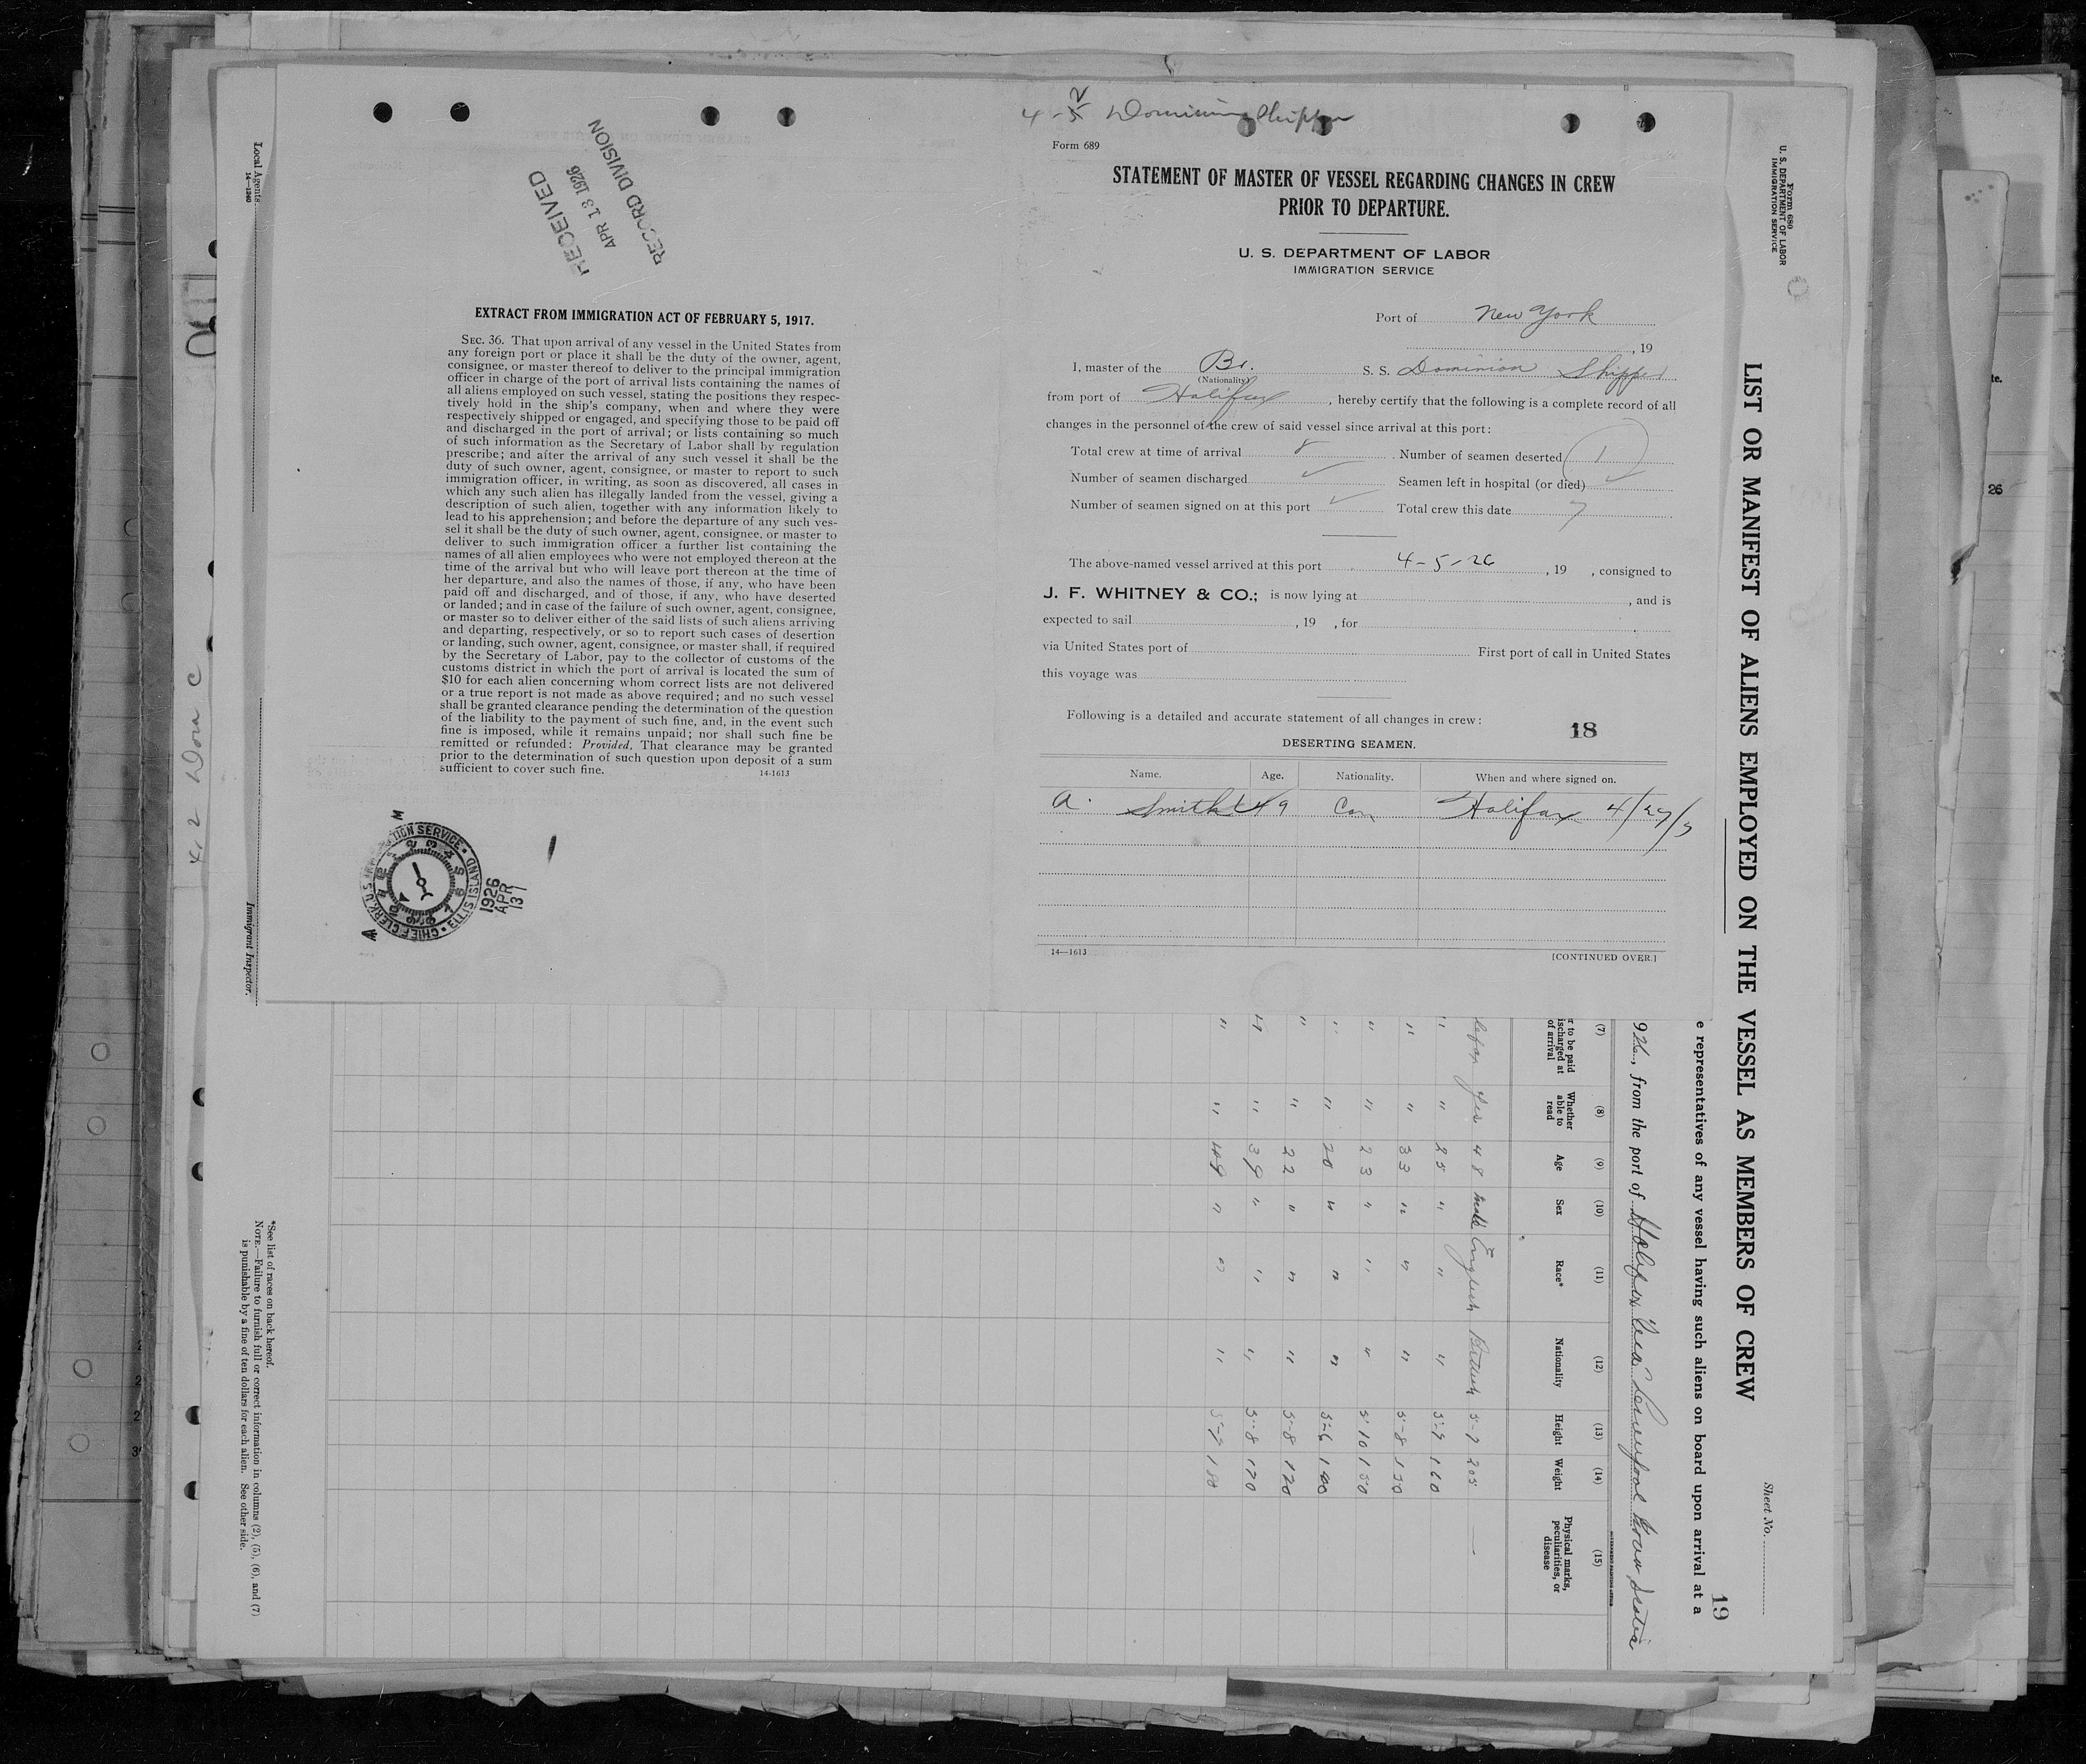 RECEIVED
APR 13 1926
RECORD DIVISION
EXTRACT FROM IMMIGRATION ACT OF FEBRUARY 5, 1917.
SEC. 36. That upon arrival of any vessel in the United States from
any foreign port or place it shall be the duty of the owner, agent,
consignee, or master thereof to deliver to the principal immigration
officer in charge of the port of arrival lists containing the names of
all aliens employed on such vessel, stating the positions they respec-
tively hold in the ship's company, when and where they were
respectively shipped or engaged, and specifying those to be paid off
and discharged in the port of arrival; or lists containing so much
of such information as the Secretary of Labor shall by regulation
prescribe; and after the arrival of any such vessel it shall be the
duty of such owner, agent, consignee, or master to report to such
immigration officer, in writing, as soon as discovered, all cases in
which any such alien has illegally landed from the vessel, giving a
description of such alien, together with any information likely to
lead to his apprehension; and before the departure of any such ves-
sel it shall be the duty of such owner, agent, consignee, or master to
deliver to such immigration officer a further list containing the
names of all alien employees who were not employed thereon at the
time of the arrival but who will leave port thereon at the time of
her departure, and also the names of those, if any, who have been
paid off and discharged, and of those, if any, who have deserted
or landed; and in case of the failure of such owner, agent, consignee,
or master so to deliver either of the said lists of such aliens arriving
and departing, respectively, or so to report such cases of desertion
or landing, such owner, agent, consignee, or master shall, if required
by the Secretary of Labor, pay to the collector of customs of the
customs district in which the port of arrival is located the sum of
$10 for each alien concerning whom correct lists are not delivered
or a true report is not made as above required; and no such vessel
shall be granted clearance pending the determination of the question
of the liability to the payment of such fine, and, in the event such
fine is imposed, while it remains unpaid; nor shall such fine be
remitted or refunded: Provided, That clearance may be granted
prior to the determination of such question upon deposit of a sum
sufficient to cover such fine. 14-1613
CHIEF CLERK U.S. IMMIGRATION SERVICE ELLIS ISLAND
1926 APR 13
Dominion Shipper
Form 689
STATEMENT OF MASTER OF VESSEL REGARDING CHANGES IN CREW
PRIOR TO DEPARTURE.
U. S. DEPARTMENT OF LABOR
IMMIGRATION SERVICE
Port of New York
, 19
I, master of the Br. S. S. Dominion Shipper
(Nationality)
from port of Halifax, hereby certify that the following is a complete record of all
changes in the personnel of the crew of said vessel since arrival at this port:
Total crew at time of arrival 8 Number of seamen deserted 1
Number of seamen discharged ✓ Seamen left in hospital (or died) ✓
Number of seamen signed on at this port ✓ Total crew this date 7
The above-named vessel arrived at this port 4-5-26, 19 , consigned to
J. F. WHITNEY & CO.; is now lying at , and is
expected to sail , 19 , for
via United States port of First port of call in United States
this voyage was
Following is a detailed and accurate statement of all changes in crew:
18
DESERTING SEAMEN.
Name. Age. Nationality. When and where signed on.
A. Smith 49 Can Halifax 4/27/5
14—1613 [CONTINUED OVER.]
Form 680
U. S. DEPARTMENT OF LABOR
IMMIGRATION SERVICE
Sheet No.
19
LIST OR MANIFEST OF ALIENS EMPLOYED ON THE VESSEL AS MEMBERS OF CREW
e representatives of any vessel having such aliens on board upon arrival at a
926, from the port of Halifax Liverpool Nova Scotia
(7) (8) (9) (10) (11) (12) (13) (14) (15)
r to be paid
ischarged at
of arrival
Whether
able to
read
Age
Sex
Race*
Nationality
Height
Weight
Physical marks,
peculiarities, or
disease
Yes 48 Male English British 5-7 205 —
" " 25 " " " 5-9 160
" " 33 " " " 5-8 150
" " 23 " " " 5 10 150
" " 20 " " " 5-6 140
" " 22 " " " 5-8 120
" " 39 " " " 5-8 170
" " 49 " " " 5-7 180
*See list of races on back hereof.
NOTE.—Failure to furnish full or correct information in columns (2), (5), (6), and (7)
is punishable by a fine of ten dollars for each alien. See other side.
Local Agents
14—1240
Immigrant Inspector.
26